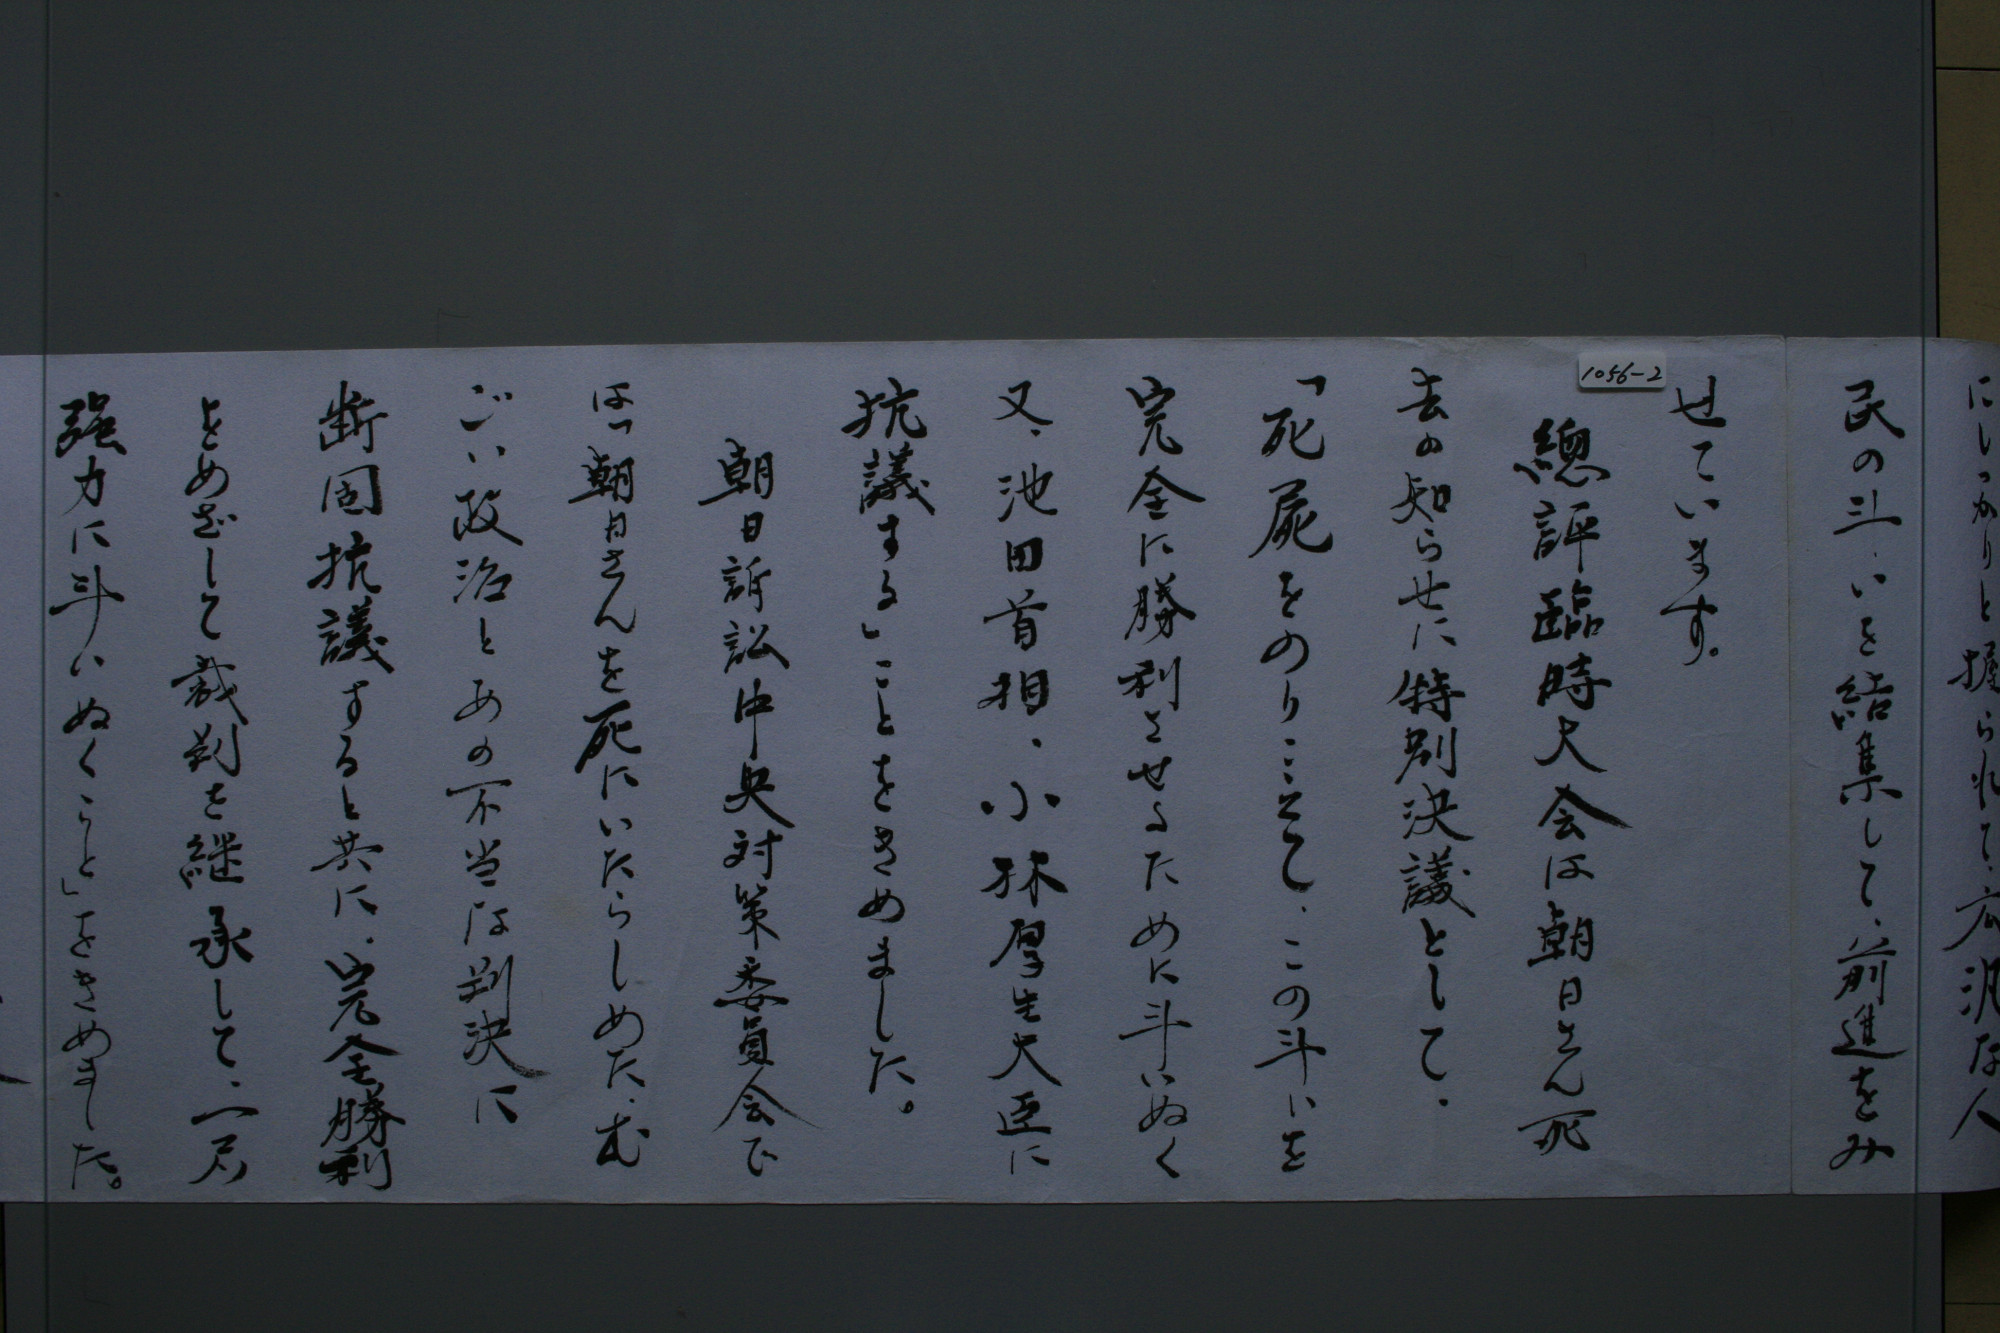 にしっかりと握られて、広汎な人
民の斗いを結集して、前進をみ
せています。
1056-2
總評臨時大会は朝日さん死
去の知らせに特別決議として、
「死屍をのりこえて、この斗いを
完全に勝利させるために斗いぬく
又、池田首相、小林厚生大臣に
抗議する」ことをきめました。
朝日訴訟中央対策委員会で
は「朝日さんを死にいたらしめた、む
ごい政治とあの不当な判決に
断固抗議すると共に、完全勝利
をめざして裁判を継承して、一層
強力に斗いぬくこと」をきめました。